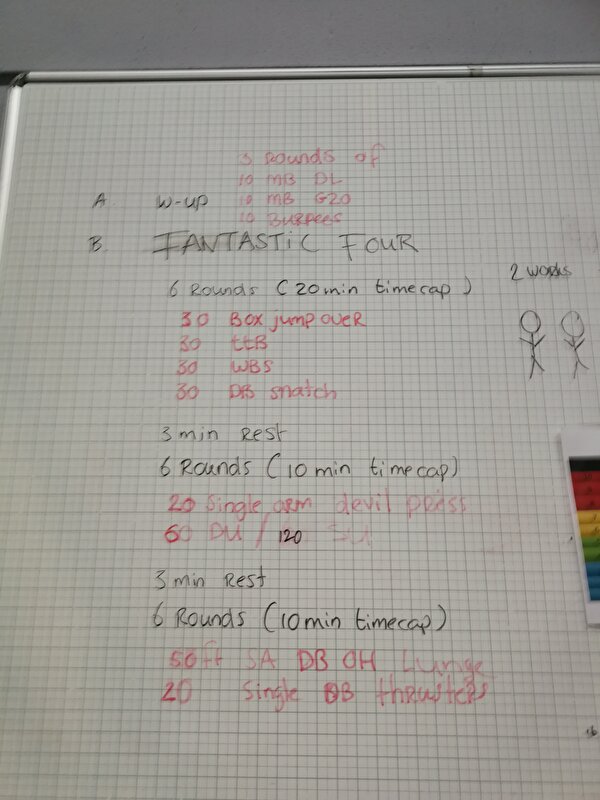 3 Rounds of
10 MB DL
A. W-up 10 MB G2O
10 Burpees
B. FANTASTIC FOUR
6 Rounds (20min timecap)
2 works
30 Box jump oveR
30 ttB
30 WBS
30 DB snatch
3 min Rest
6 Rounds (10min timecap)
20 Single arm devil press
60 DU / 120 SU
3 min Rest
6 Rounds (10min timecap)
50ft SA DB OH Lunge
20 Single DB thrusters